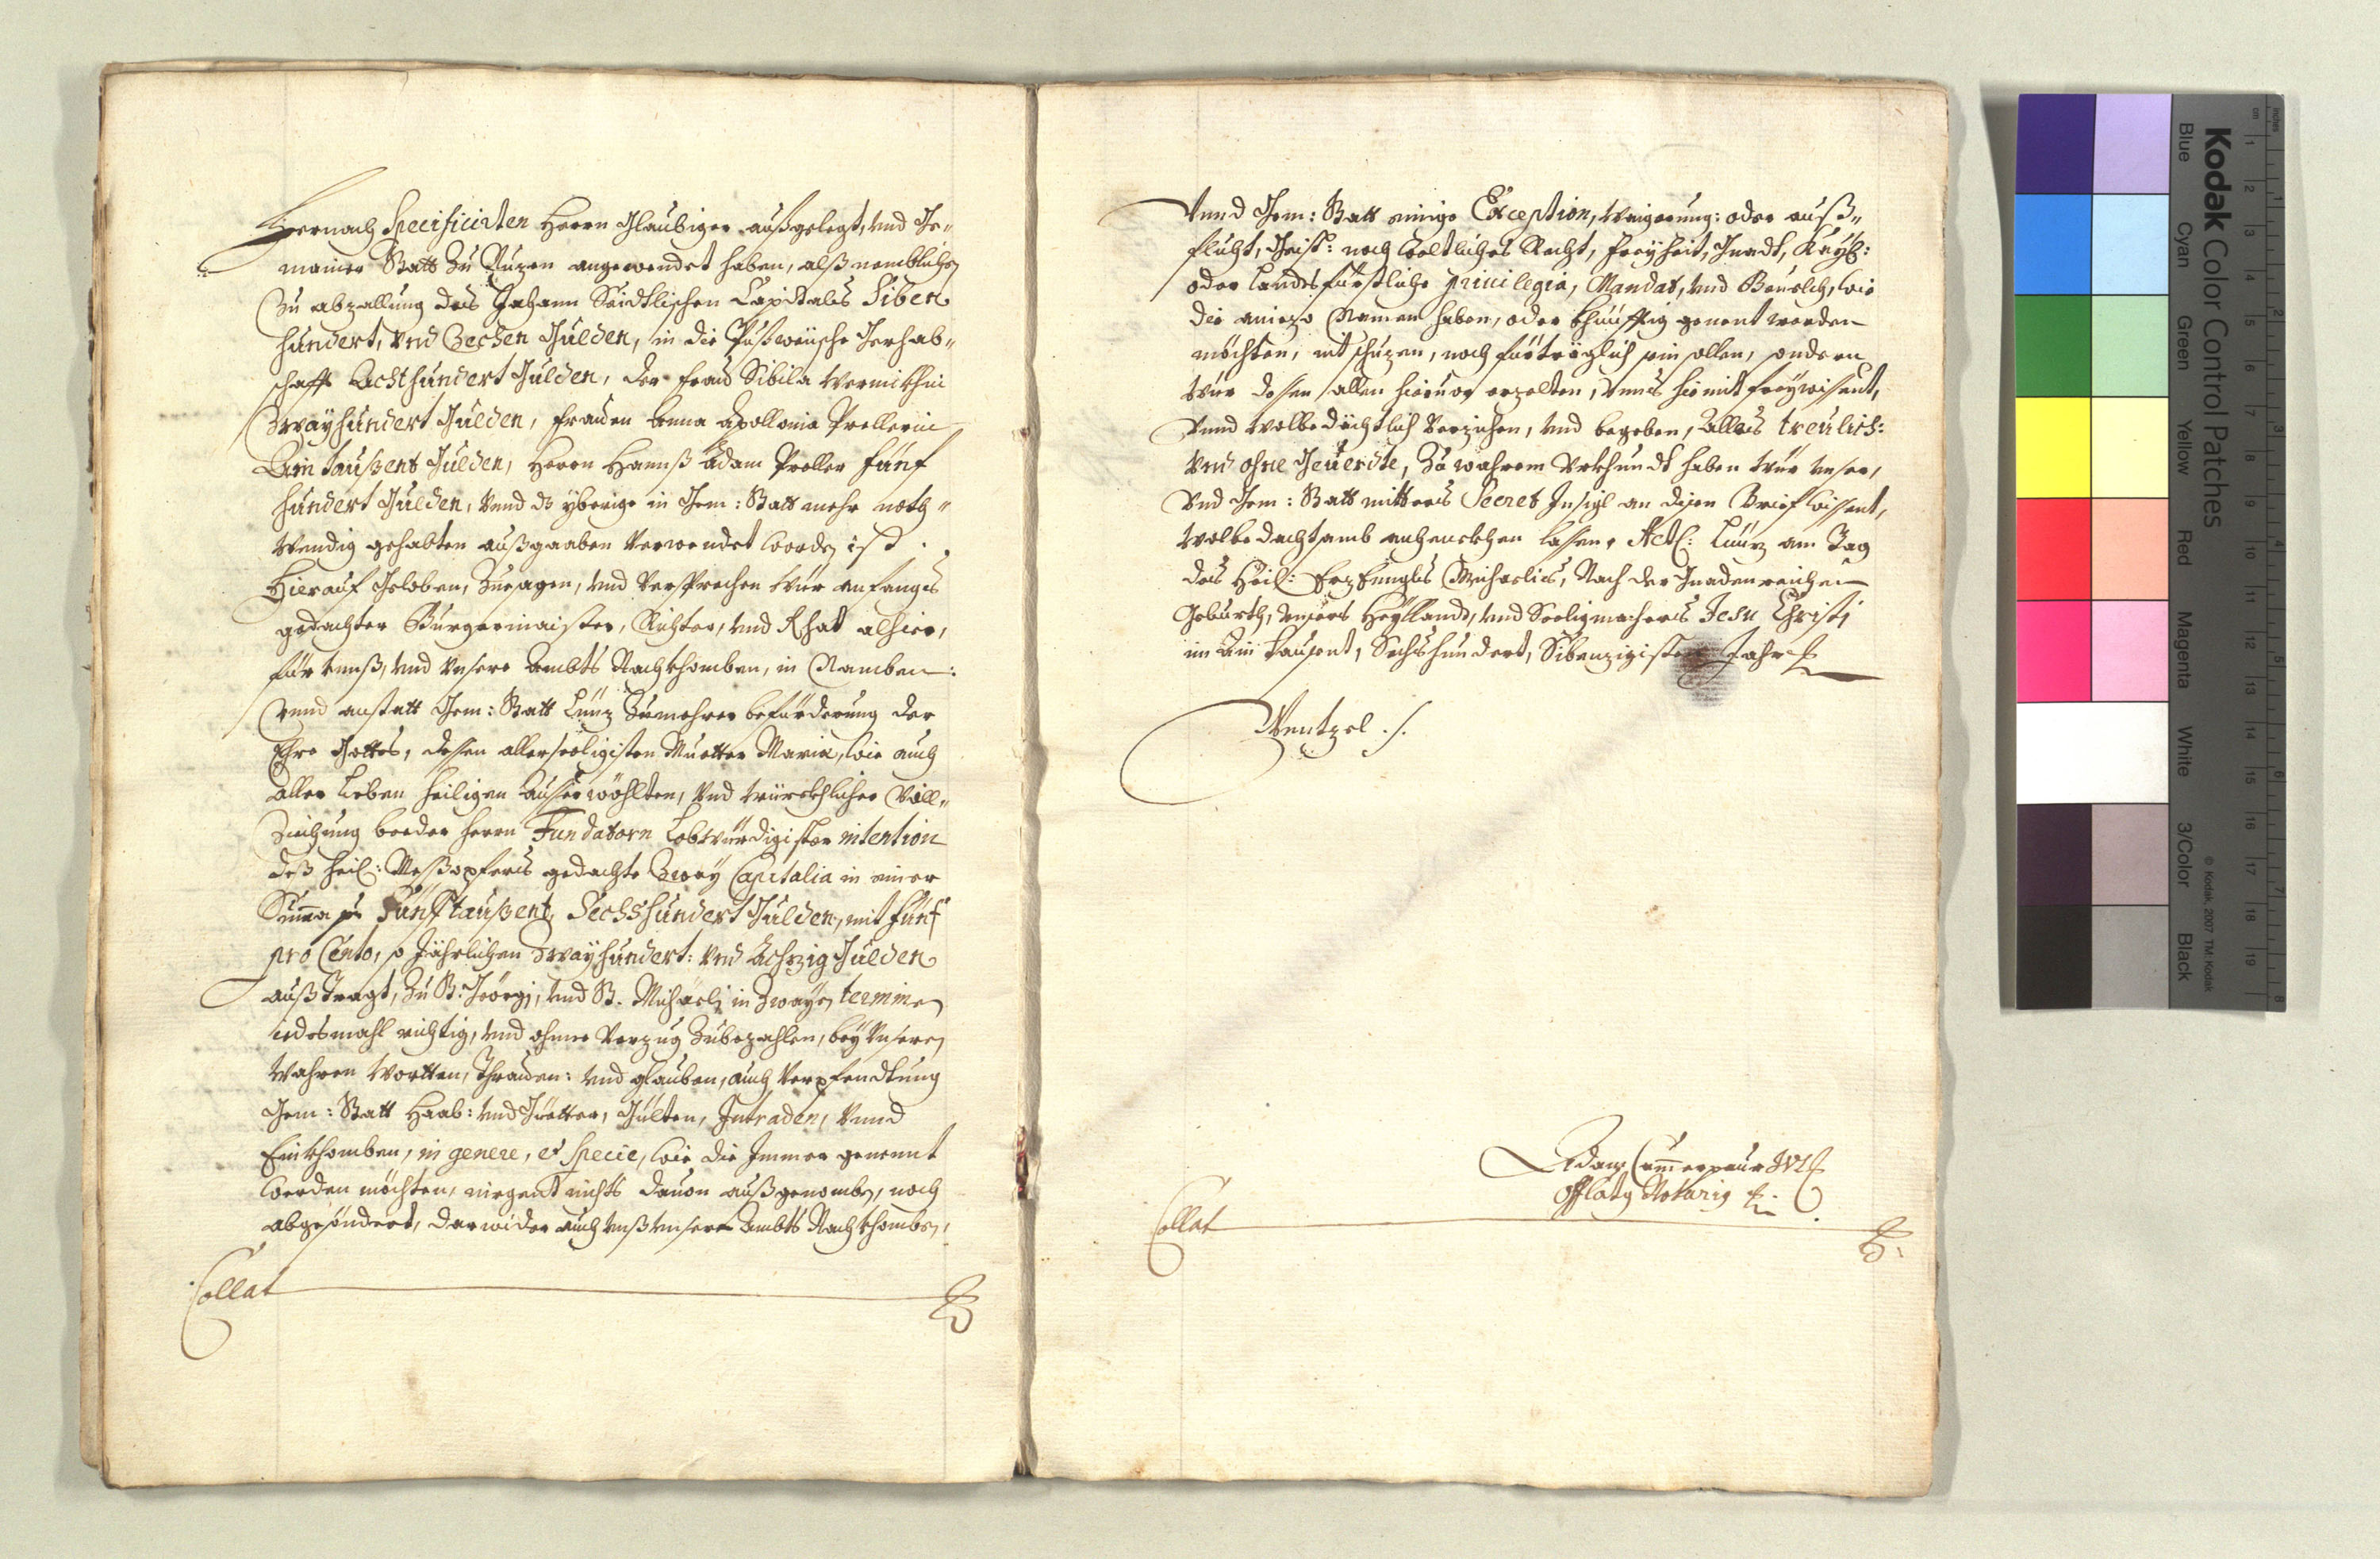 Hernach Specificirten Herrn Glaubiger außgelegt, vnd Ge„
mainer Statt zu Nuzen angewendet haben, alß nemblichen
Zu abzallung des Johann Seidtlischen Capitales Siben
hundert, vnd Zechen Gulden, in die Gerhab„
schafft Achthundert Gulden, der Frau Sibila
Zwayhundert Gulden, Frauen Anna Apollonia Prellerin
Ain taußent Gulden, Herrn Hannß Adam Preller Fünf
hundert Gulden, vnnd dz yberige in Gem: Statt mehr noth„
wendig gehabten außgaaben verwendet worden ist.
Hierauf Geloben, Zuesagen, vnd versprechen wür anfangs
gedachter Burgermaister, Richter, vnd Rhat alhier,
für vnnß, vnd vnsere Ambts Nachkhomben, in Namben:
vnnd anstatt Gem: Statt Lünz zumehrer beförderung der
Ehre Gottes, dessen allerseeligisten Muetter Maria, wie auch
aller Lieben Heiligen Außerwöhlten, vnd würckhlicher Voll„
Ziechung beeder Herrn Fundatorn Lobwürdigister intention
deß heil: Meßopfers gedachte Zway Capitalia in einer
Summa Fünfftaußent, Sechshundert Gulden, mit Fünf
pro Cento, so Jährlichen Zwayhundert: vnd Achzig Gulden
außtragt, Zu St: Georgi, vnd St. Michaeli in Zwayen terminen
iedesmahl richtig, vnd ohne Verzug Zubezahlen, bey vnseren
Wahren Wortten, Threuen: vnd glauben, auch Verpfendtung
Gem: Statt Haab: vnd Güetter, Gülten, Intraden, vnnd
Einkhomben, in genere, et specie, wie die Immer genennt
werden möchten, nirgent nichts dauon außgenomben, noch
abgesöndert, darwider auch vnß vnsere Ambts Nachkhomben,
Collat
Vnnd Gem: Statt einige Exception, Waigerung: oder auß„
flucht, Geist: noch Weltliches Recht, Freyheit, Gnadt, Kayß:
oder Landtsfürstliche privilegia, Mandat, vnd Beuelch, wie
die aniezo Namen haben, oder khünfftig genent werden
möchten, nit schuzen, noch fürträglich sein sollen, sondern
wür dessen allen hieruor erzelten, vnns hiemit freywissent,
Vnnd wolbedächtlich Verzichen, vnd begeben, Alles treulich:
vnd ohne Geuerdte, Zu wahrem Vrkhundt haben wür vnser,
vnd Gem: Statt mitters Secret Insigl an disen Brief wissent,
wolbedachtsamb anhenckhen lassen, Actl: Lünz am Tag
des Heil: Erzengls Michaelis, Nach der Gnadenreichen
Geburth, vnsers Heyllandts, vnd Seeligmachers Jesu Christi
im Ain tausent, Sechshundert, Sibenzigisten Jahr
Wentzel
Adam
Notarius
Collat